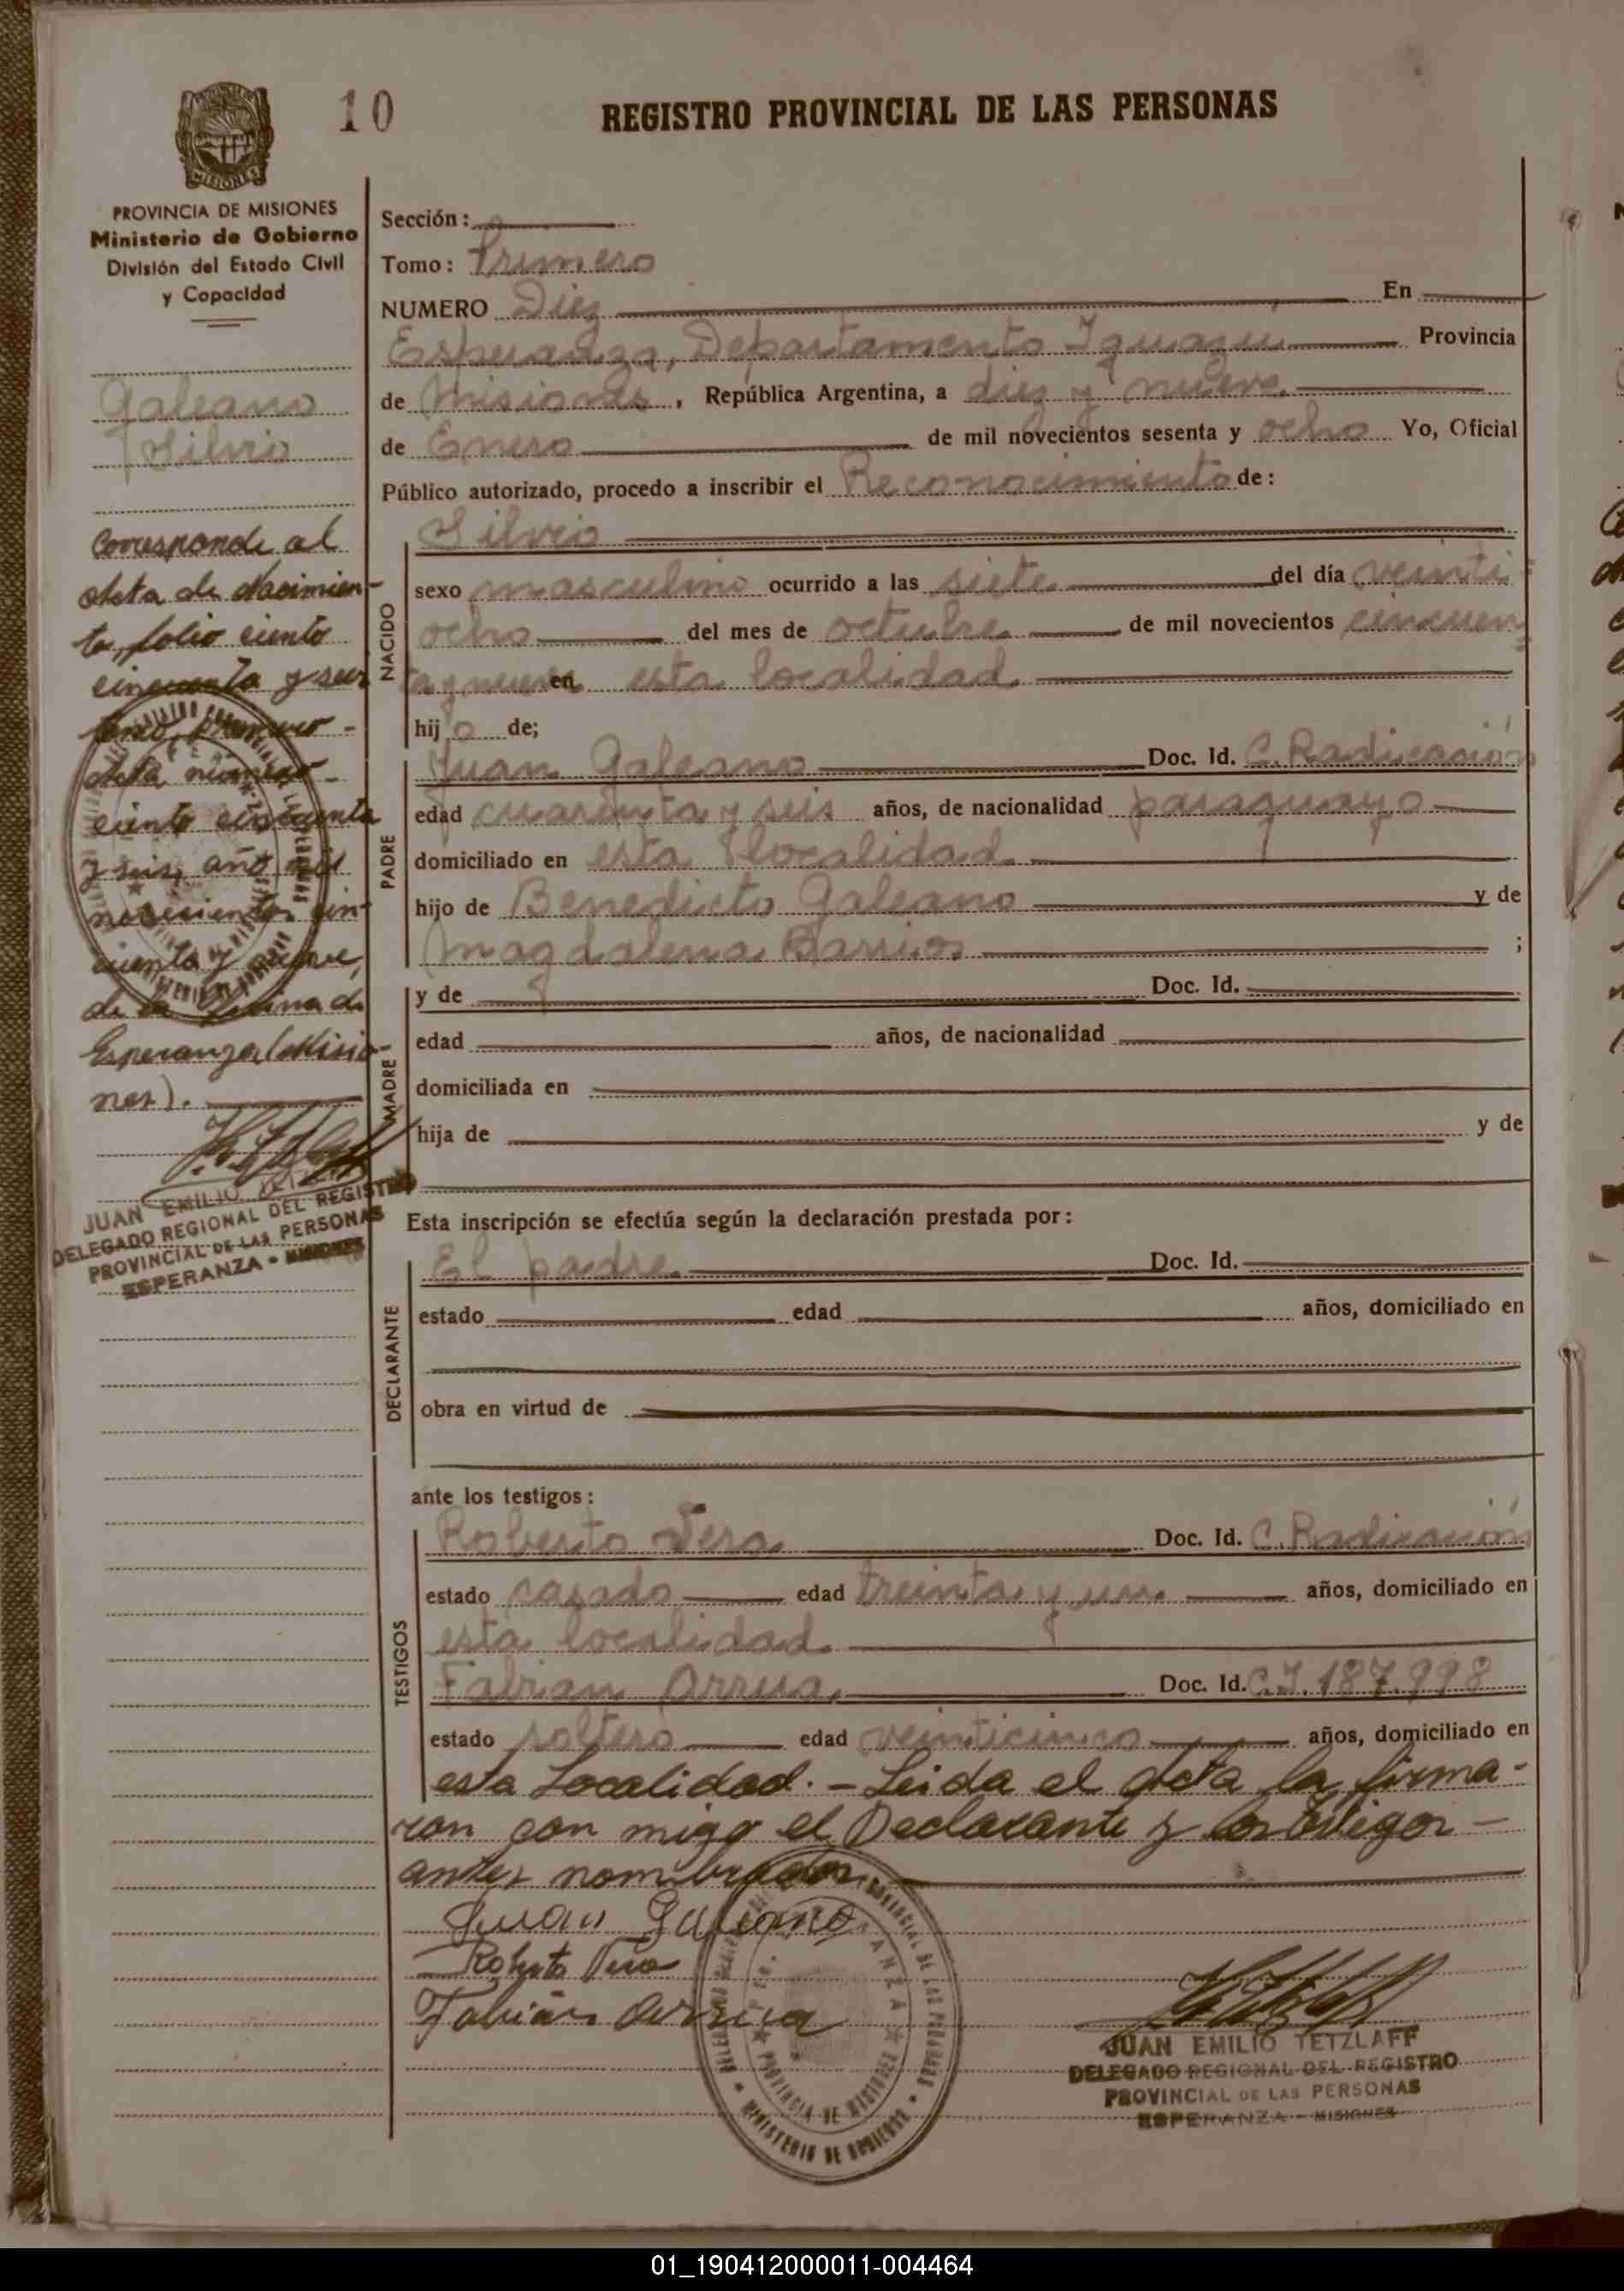 10
REGISTRO PROVINCIAL DE LAS PERSONAS
MISIONES
PROVINCIA DE MISIONES
Ministerio de Gobierno
División del Estado Civil
y Capacidad
Galeano
Silvio
Corresponde al
Acta de Nacimien-
to, folio ciento
cincuenta y seis
tomo, primero -
Acta número -
ciento cincuenta
y seis, año mil
novecientos cin-
cuenta y nueve,
de la Oficina de
Esperanza (Misio-
nes).
JUAN EMILIO TETZLAFF
DELEGADO REGIONAL DEL REGISTRO
PROVINCIAL DE LAS PERSONAS
ESPERANZA - MISIONES
Sección:
Tomo: Primero
NUMERO Diez En
Esperanza, Departamento Iguazú Provincia
de Misiones, República Argentina, a diez y nueve
de Enero de mil novecientos sesenta y ocho Yo, Oficial
Público autorizado, procedo a inscribir el Reconocimiento de:
NACIDO
Silvio
sexo masculino ocurrido a las siete del día veinti-
ocho del mes de octubre de mil novecientos cincuen-
ta y nueve en esta localidad
hijo de;
PADRE
Juan Galeano Doc. Id. C. Radicación
edad cuarenta y seis años, de nacionalidad paraguayo
domiciliado en esta localidad
hijo de Benedicto Galeano y de
Magdalena Barrios ;
MADRE
y de Doc. Id.
edad años, de nacionalidad
domiciliada en
hija de y de
Esta inscripción se efectúa según la declaración prestada por:
DECLARANTE
El padre Doc. Id.
estado edad años, domiciliado en
obra en virtud de
ante los testigos:
TESTIGOS
Roberto Vera Doc. Id. C. Radicación
estado casado edad treinta y un años, domiciliado en
esta localidad
Fabian Arrua Doc. Id. C.I. 187.998
estado soltero edad veinticinco años, domiciliado en
esta Localidad. - Leida el Acta la firma-
ron con migo el Declarante y los testigos -
antes nombrados
Juan Galeano
Roberto Vera
Fabián Arrua
PROVINCIA DE MISIONES
MINISTERIO DE GOBIERNO
JUAN EMILIO TETZLAFF
DELEGADO REGIONAL DEL REGISTRO
PROVINCIAL DE LAS PERSONAS
ESPERANZA - MISIONES
01_190412000011-004464